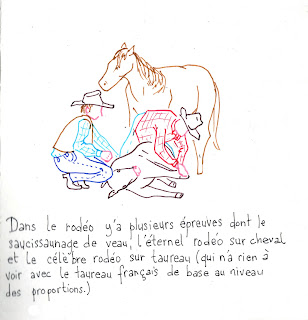 Dans le rodéo y'a plusieurs épreuves dont le
saucissaunage de veau, l'éternel rodéo sur cheval
et le célèbre rodéo sur taureau (qui n'a rien à
voir avec le taureau français de base au niveau
des proportions.)